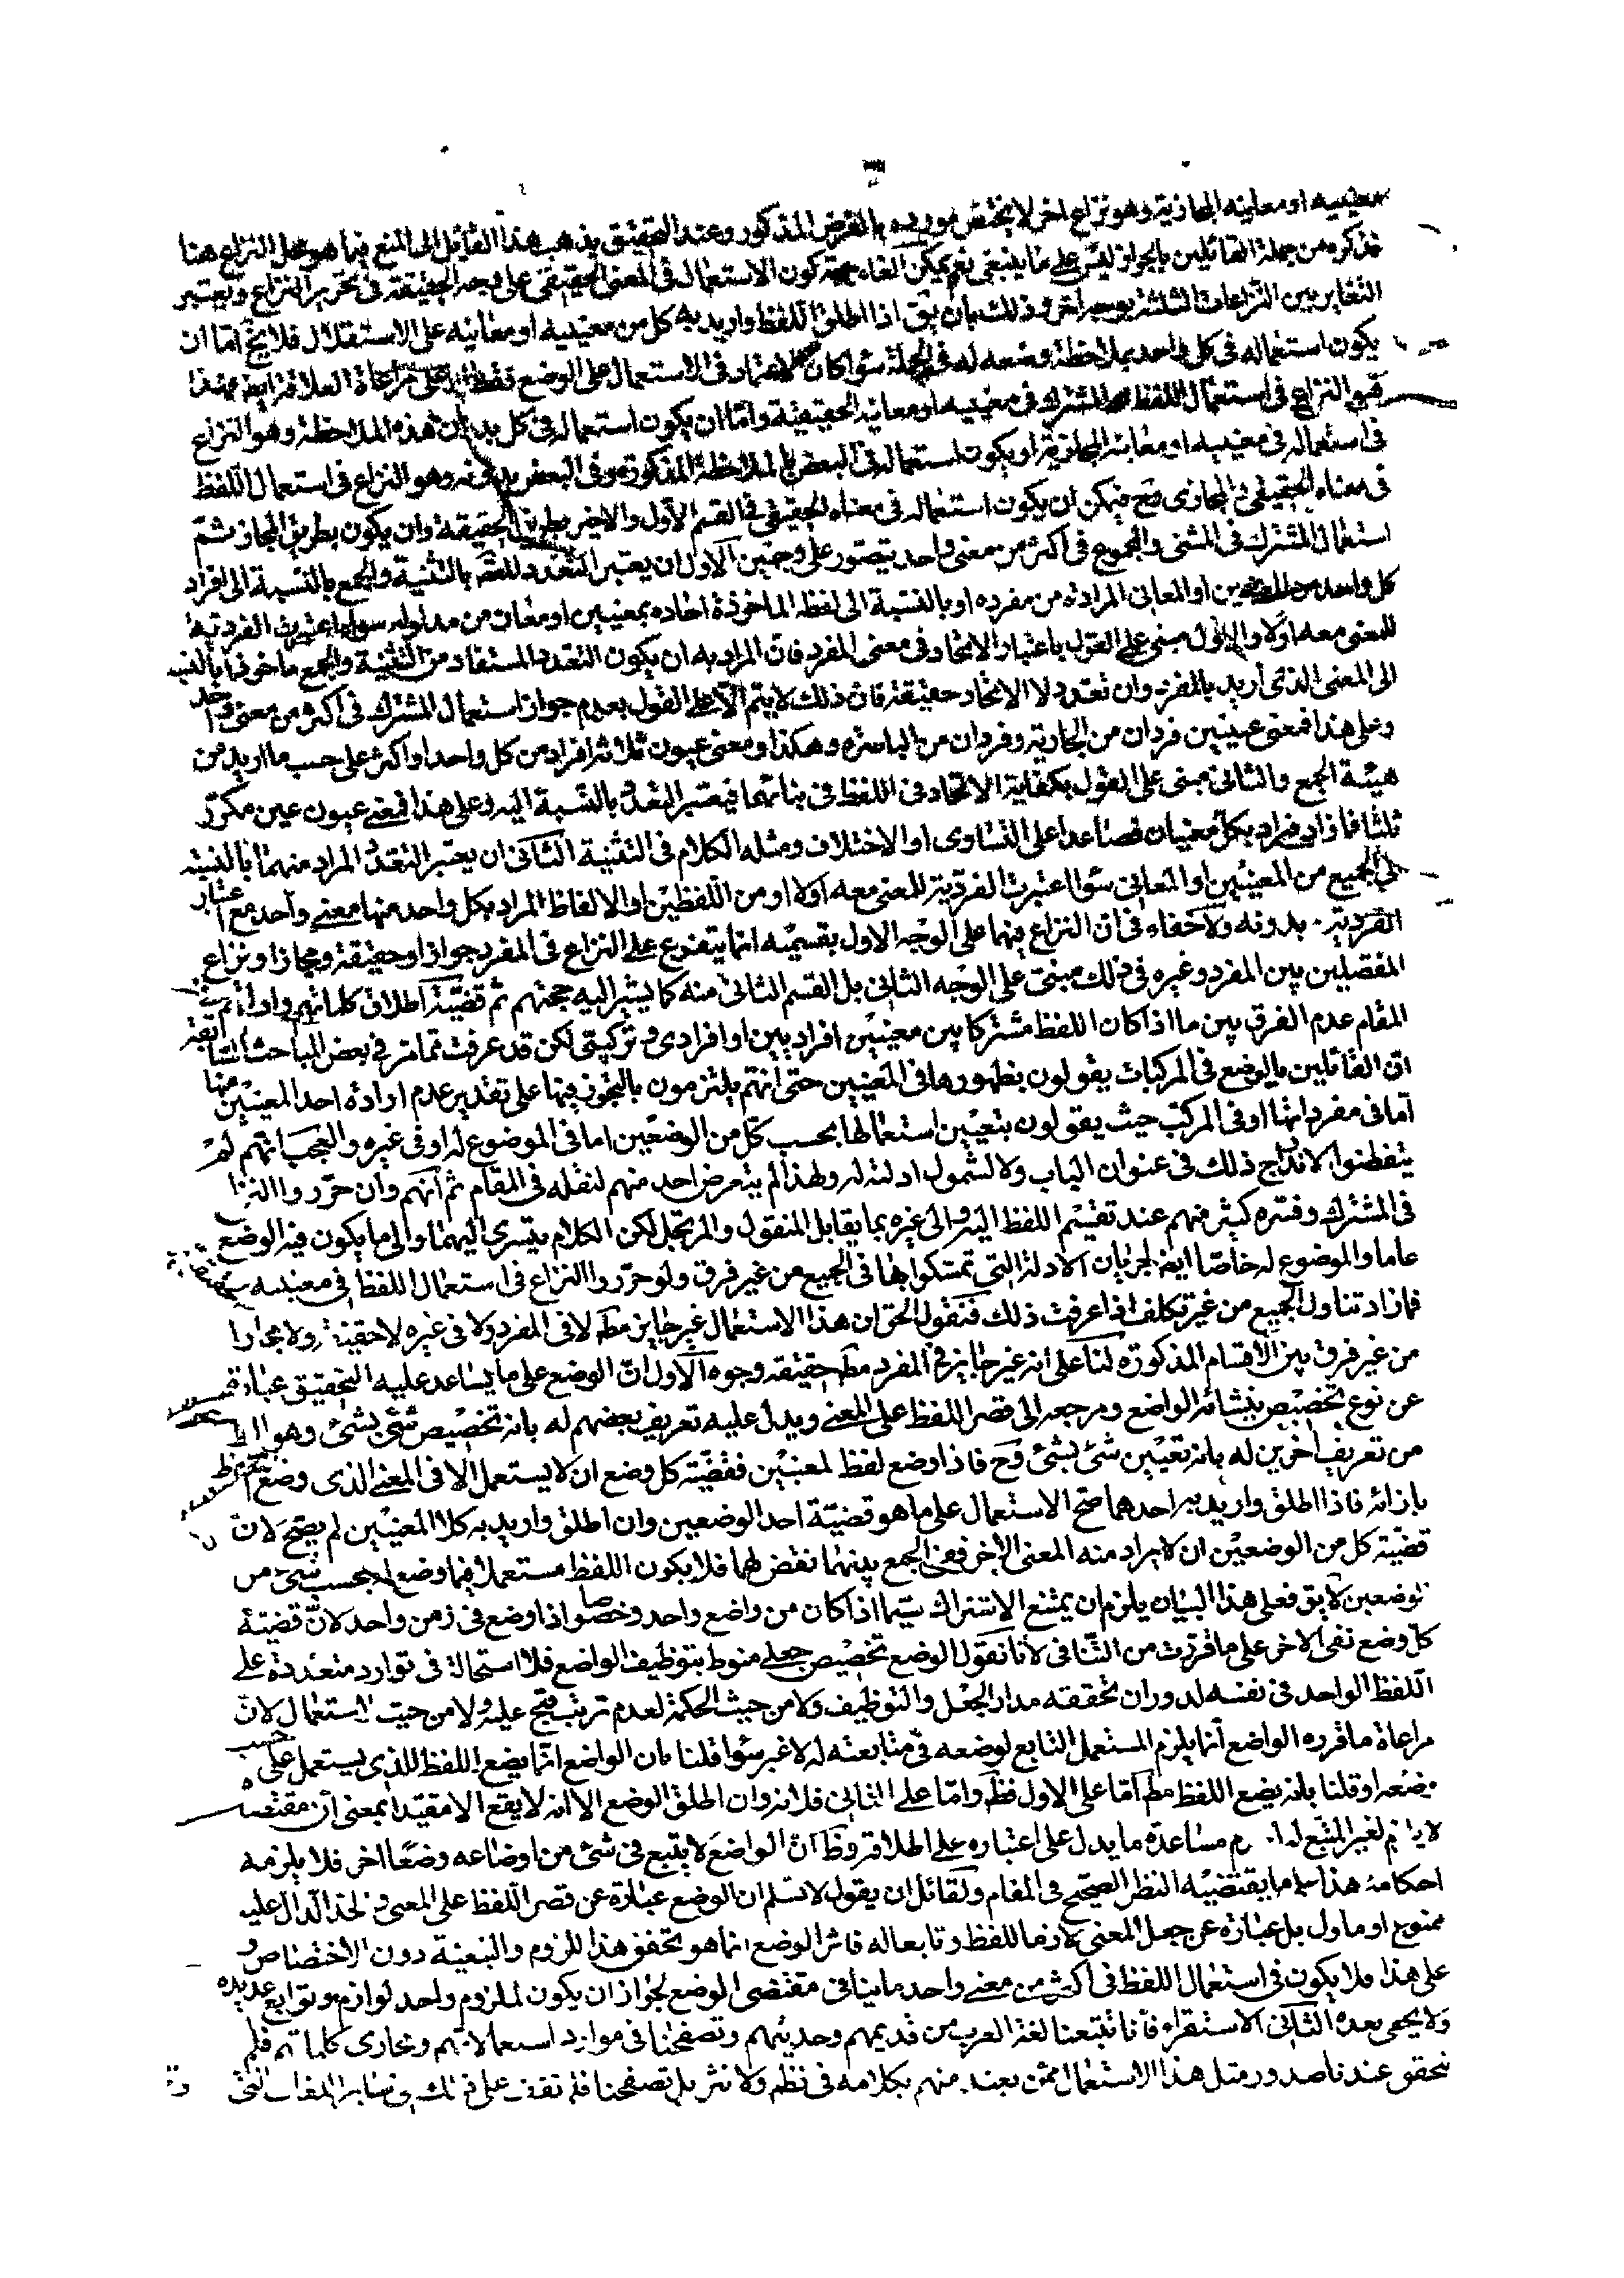 معنييه او معانيه المجازية وهو نزاع اخر لا يختص مورده بالفرض المذكور وعند التحقيق يذهب هذا القائل الى المنع فيما هو محل النزاع هنا
فذكره من جملة القائلين بالجواز ليس على ما ينبغى نعم يمكن الغاء جهة كون الاستعمال فى المعنى الحقيقى على وجه الحقيقة فى تحرير النزاع ويعتبر
التغاير بين النزاعات الثلثة بوجه اخر وذلك بان يق اذا اطلق اللفظ واريد به كل من معنييه او معانيه على الاستقلال فلا يخ اما ان
يكون استعماله فى كل واحد بملاحظة وضعه له فى الجملة سواء كان الاعتماد فى الاستعمال على الوضع فقط او على مراعاة العلاقة ايض فهذا
هو النزاع فى استعمال اللفظ المشترك فى معنييه او معانيه الحقيقية واما ان يكون استعماله فى كل بدون هذه الملاحظة وهو النزاع
فى استعماله فى معنييه او معانيه المجازية او يكون استعماله فى البعض بالملاحظة المذكورة وفى البعض بدونه وهو النزاع فى استعمال اللفظ
فى معناه الحقيقى والمجازى وح فيمكن ان يكون استعماله فى معناه الحقيقى فى القسم الاول والاخير بطريق الحقيقة وان يكون بطريق المجاز ثم
استعمال المشترك فى المثنى والمجموع فى اكثر من معنى واحد يتصور على وجهين الاول ان يعتبر التعدد بالتثنية والجمع بالنسبة الى افراد
كل واحد من المعنيين او المعانى المرادة من مفرده او بالنسبة الى لفظه الماخوذة اتحاده بمعنيين او معان من مدلوله سواء اعتبرت الفردية
للمعنى معه اولا والاول مبنى على القول باعتبار الاتحاد فى معنى المفرد فان المراد به ان يكون التعدد المستفاد من التثنية والجمع ماخوذا بالنسبة
الى المعنى الذى اريد بالمفرد وان تعدد لا الاتحاد حقيقة فان ذلك لا يتم الا على القول بعدم جواز استعمال المشترك فى اكثر من معنى واحد
وعلى هذا فمعنى عينين فردان من الجارية وفردان من الباصرة وهكذا ومعنى عيون ثلاثة افراد من كل واحد او اكثر على حسب ما اريد من
هيئة الجمع والثانى مبنى على القول بكفاية الاتحاد فى اللفظ فى بنائهما فيعتبر التعدد بالنسبة اليه وعلى هذا فمعنى عيون عين مكرر
ثلثا فما زاد فيراد بكل معنيان فصاعدا على التساوى او الاختلاف ومثله الكلام فى التثنية الثانى ان يعتبر التعدد المراد منهما بالنسبة
الى الجميع من المعنيين او المعانى سواء اعتبرت الفردية للمعنى معه اولا او من اللفظين او الالفاظ المراد بكل واحد منها معنى واحد مع اعتبار
الفردية بدونه ولا خفاء فى ان النزاع فيهما على الوجه الاول بقسميه انما يتفرع على النزاع فى المفرد جوازا وحقيقة ومجازا ونزاع
المفصلين بين المفرد وغيره فى ذلك مبنى على الوجه الثانى بل القسم الثانى منه كما يشير اليه حجتهم ثم قضية اطلاق كلماتهم وادلتهم فى
المقام عدم الفرق بين ما اذا كان اللفظ مشتركا بين معنيين افراديين او افرادى وتركيبى لكن قد عرفت مما مر فى بعض المباحث السابقة
ان القائلين بالوضع فى المركبات يقولون بظهورها فى المعنيين حتى انهم يلتزمون بالتجوز فيها على تقدير عدم ارادة احد المعنيين منها
اما فى مفرداتها او فى المركب حيث يقولون بتعيين استعمالها بحسب كل من الوضعين اما فى الموضوع له او فى غيره والعجب انهم لم
يتفطنوا لاندراج ذلك فى عنوان الباب ولا لشمول ادلته له ولهذا لم يتعرض احد منهم لنقله فى المقام ثم انهم وان حرروا النزاع
فى المشترك وفسره كثير منهم عند تقسيم اللفظ اليه والى غيره بما يقابل المنقول والمرتجل لكن الكلام يتسرى اليهما والى ما يكون فيه الوضع
عاما والموضوع له خاصا ايض لجريان الادلة التى تمسكوا بها فى الجميع من غير فرق ولو حرروا النزاع فى استعمال اللفظ فى معنييه
فما زاد تناول الجميع من غير تكلف اذا عرفت ذلك فنقول الحق ان هذا الاستعمال غير جايز مط لا فى المفرد ولا فى غيره لا حقيقة ولا مجازا
من غير فرق بين الاقسام المذكورة لنا على انه غير جايز فى المفرد مط حقيقة وجوه الاول ان الوضع على ما يساعد عليه التحقيق عبارة
عن نوع تخصيص ينشائه الواضع ومرجعه الى قصر اللفظ على المعنى ويدل عليه تعريف بعضهم له بانه تخصيص شئ بشئ وهو
من تعريف اخرين له بانه تعيين شئ بشئ وح فاذا وضع لفظ لمعنيين فقضية كل وضع ان لا يستعمل الا فى المعنى الذى وضع اللفظ
بازائه فاذا اطلق واريد به احدهما صح الاستعمال على ما هو قضية احد الوضعين وان اطلق واريد به كلا المعنيين لم يصح لان
قضية كل من الوضعين ان لا يراد منه المعنى الاخر ففى الجمع بينهما نقض لهما فلا يكون اللفظ مستعملا فيما وضع له بحسب شئ من
الوضعين لا يق فعلى هذا البيان يلزم ان يمتنع الاشتراك سيما اذا كان من واضع واحد وخصوصا اذا وضع فى زمن واحد لان قضية
كل وضع نفى الاخر على ما قررت من التنافى لانا نقول الوضع تخصيص جعلى منوط بتوظيف الواضع فلا استحالة فى توارد متعددة على
اللفظ الواحد فى نفسه لدوران تحققه مدار الجعل والتوظيف ولا من حيث الحكمة لعدم ترتب قبح عليه ولا من حيث الاستعمال لان
مراعاة ما قرره الواضع انما يلزم المستعمل التابع لوضعه فى متابعته له لا غير سواء قلنا بان الواضع انما يضع اللفظ للذى يستعمل على حسب
وضعه او قلنا بانه يضع اللفظ مط اما على الاول فظ واما على الثانى فلانه وان اطلق الوضع الا انه لا يقع الا مقيدا بمعنى ان مقتضاه
لا يلزم لغير المتبع له مساعدة ما يدل على اعتباره على اطلاقه وظ ان الواضع لا يتبع فى شئ من اوضاعه وضعا اخر فلا يلزمه
احكامه هذا ما يقتضيه النظر الصحيح فى المقام ولقائل ان يقول لا نسلم ان الوضع عبارة عن قصر اللفظ على المعنى والحد الدال عليه
ممنوع او ماول بل عبارة عن جعل المعنى لازما للفظ وتابعا له فاثر الوضع انما هو تحقق هذا اللزوم والتبعية دون الاختصاص و
على هذا فلا يكون فى استعمال اللفظ فى اكثر من معنى واحد ما ينافى مقتضى الوضع لجواز ان يكون لملزوم واحد لوازم وتوابع عديدة
ولا يخفى بعده الثانى الاستقراء فانا تتبعنا لغة العرب من قديمهم وحديثهم وتصفحنا فى موارد استعمالاتهم ومجارى كلماتهم فلم
نتحقق عندنا صدور مثل هذا الاستعمال ممن يعتد منهم بكلامه فى نظم ولا نثر بل تصفحنا فلم نقف على ذلك فى ساير اللغات التى